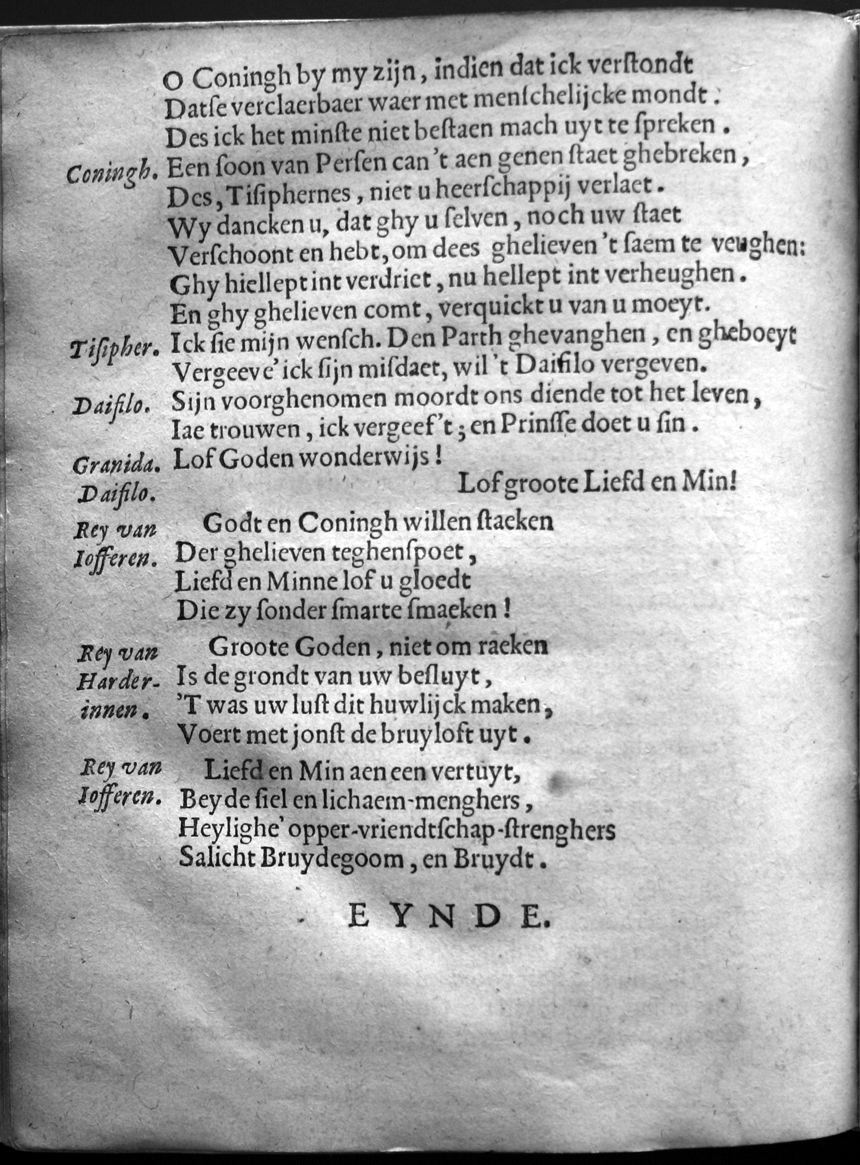 O Coningh by my zijn, indien dat ick verſtondt
Datſe verclaerbaer waer met menſchelijcke mondt:
Des ick het minſte niet beſtaen mach uyt te ſpreken.
Coningh. Een ſoon van Perſen can't aen genen ſtaet ghebreken,
Des, Tiſiphernes, niet u heerſchappij verlaet.
Wy dancken u, dat ghy u ſelven, noch uw ſtaet
Verſchoont en hebt, om dees ghelieven 't ſaem te veughen:
Ghy hiellept int verdriet, nu hellept int verheughen.
En ghy ghelieven comt, verquickt u van u moeyt.
Tiſipher. Ick ſie mijn wenſch. Den Parth ghevanghen, en gheboeyt
Vergeeve' ick ſijn miſdaet, wil 't Daifilo vergeven.
Daifilo. Sijn voorghenomen moordt ons diende tot het leven,
Iae trouwen, ick vergeef't; en Prinſſe doet u ſin.
Granida. Lof Goden wonderwijs!
Daifilo. Lof groote Liefd en Min!
Rey van Godt en Coningh willen ſtaeken
Iofferen. Der ghelieven teghenſpoet,
Liefd en Minne lof u gloedt
Die zy ſonder ſmarte ſmaeken!
Rey van Groote Goden, niet om raeken
Harder- Is de grondt van uw beſluyt,
innen. 'T was uw luſt dit huwlijck maken,
Voert met jonſt de bruyloft uyt.
Rey van Liefd en Min aen een vertuyt,
Iofferen. Beyde ſiel en lichaem-menghers,
Heylighe' opper-vriendtſchap-ſtrenghers
Salicht Bruydegoom, en Bruydt.
EYNDE.